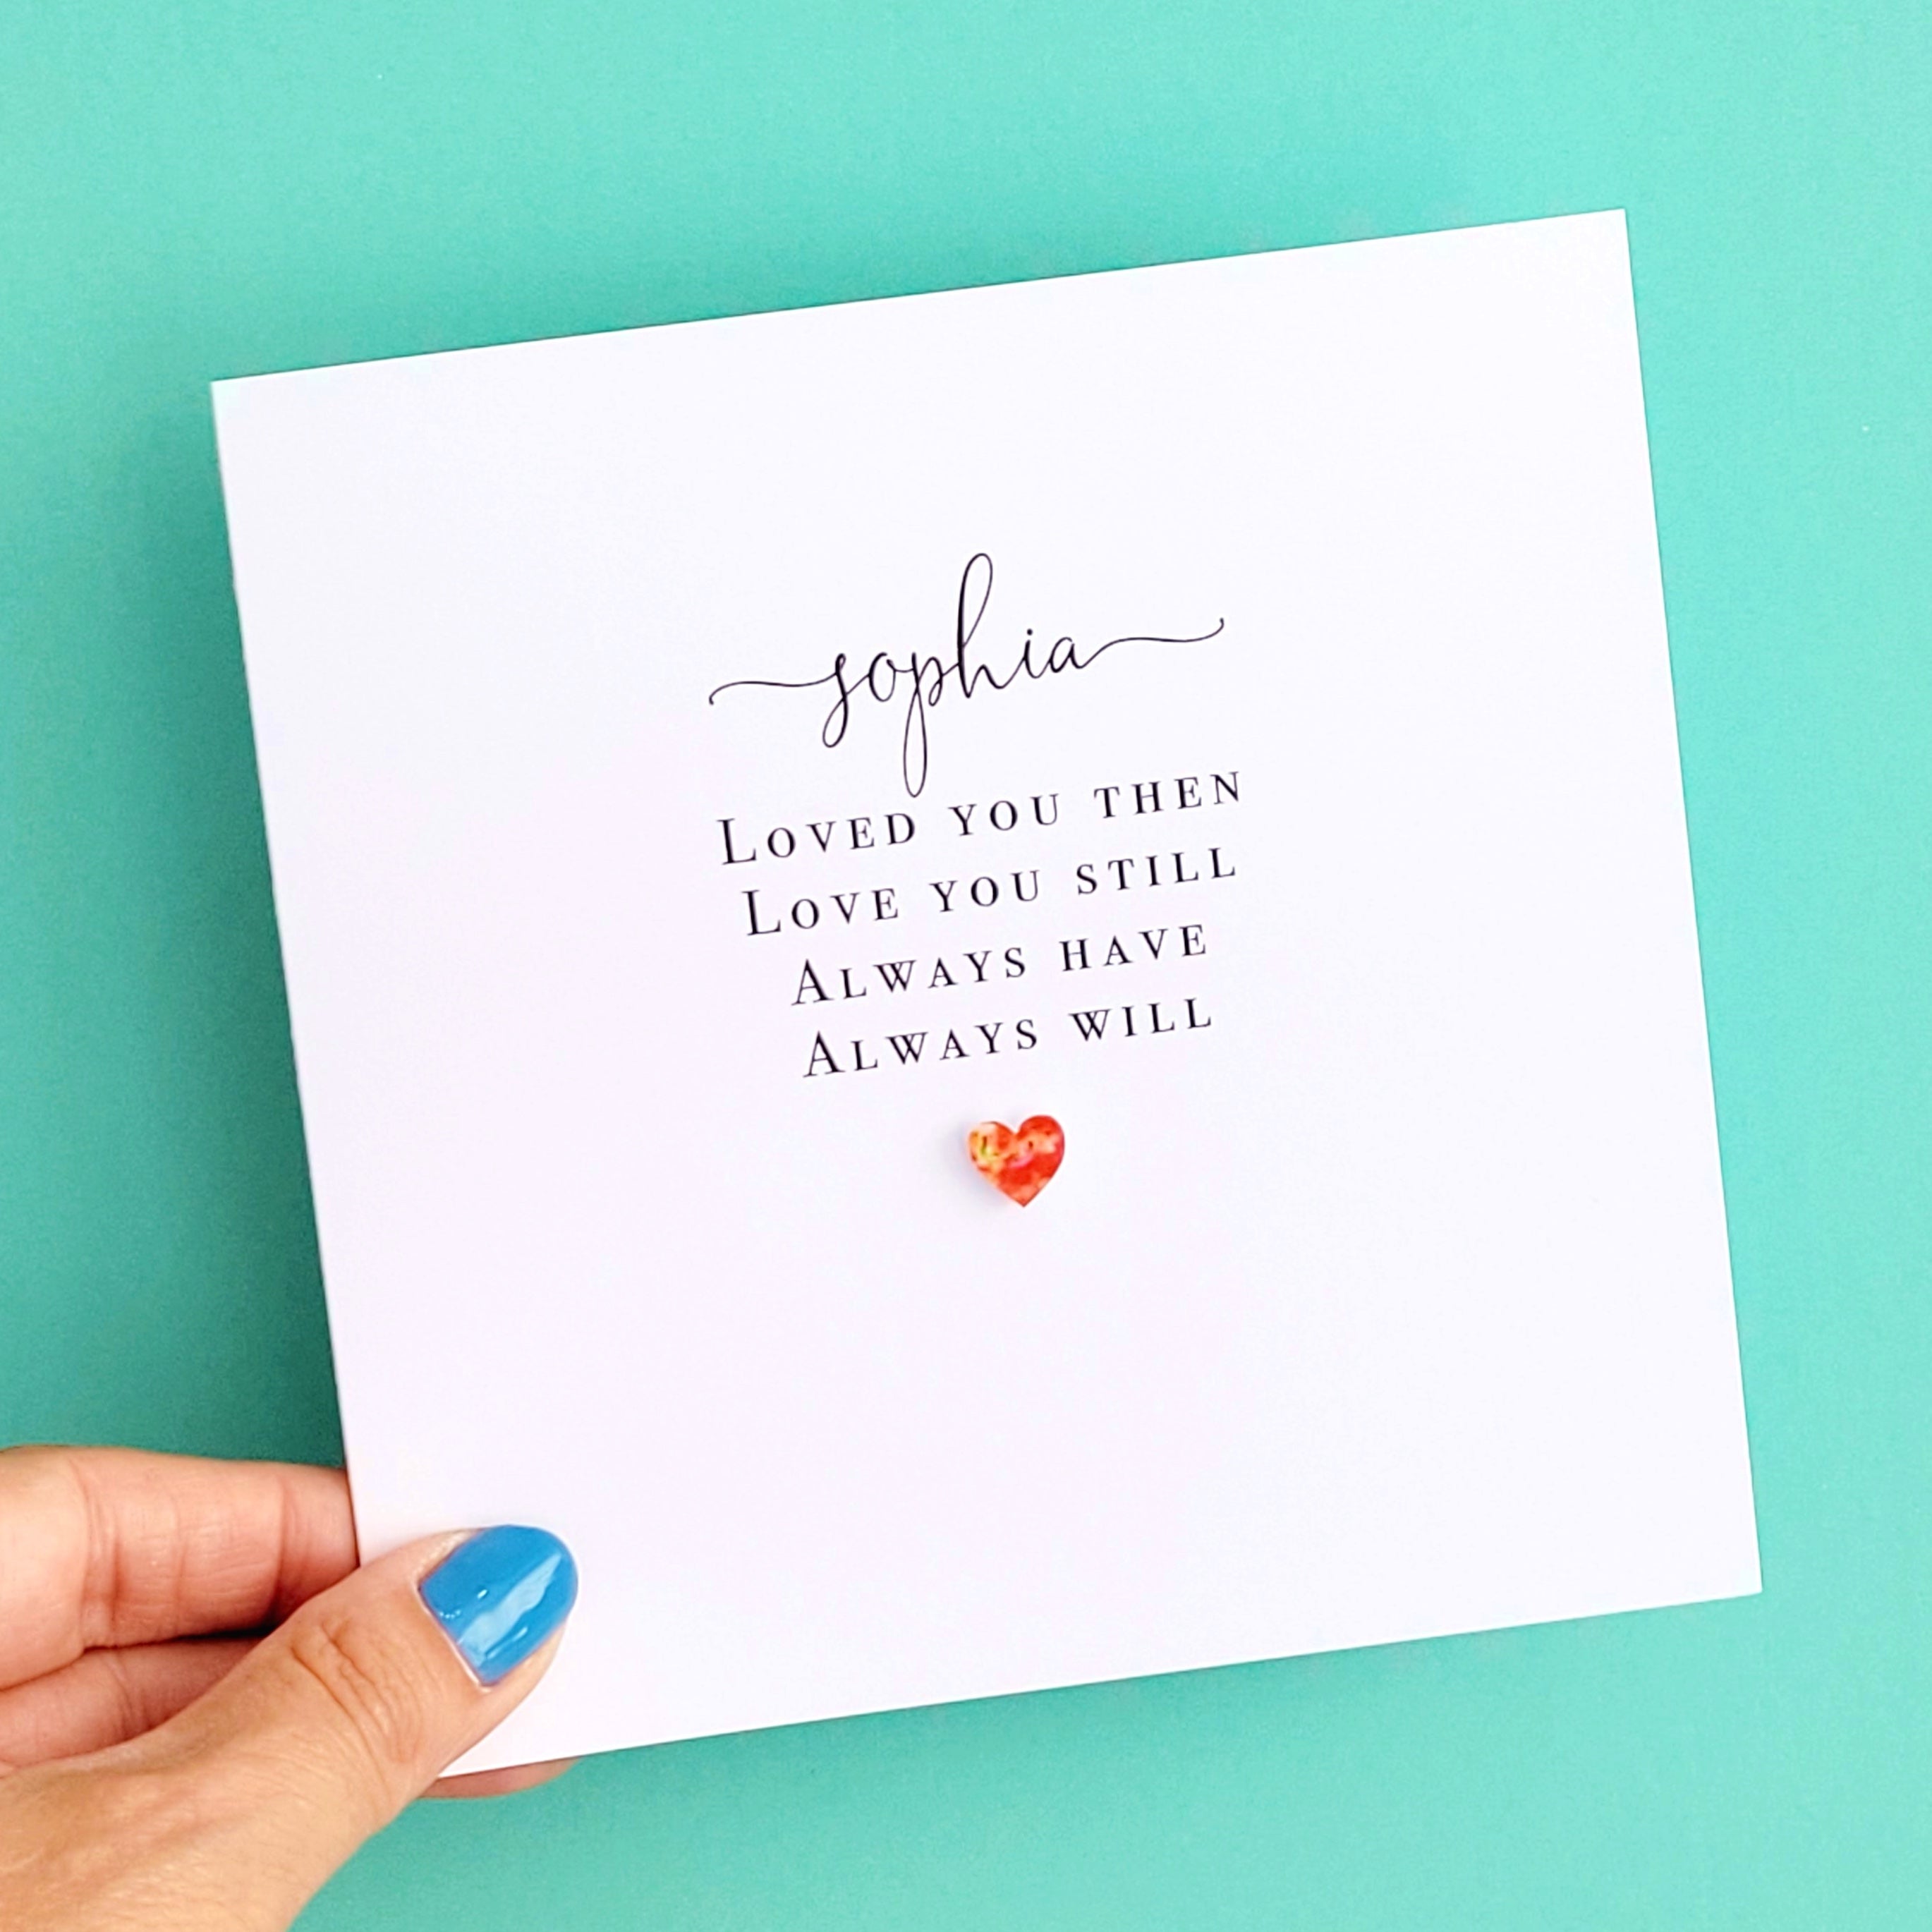 sophia
LOVED YOU THEN
LOVE YOU STILL
ALWAYS HAVE
ALWAYS WILL